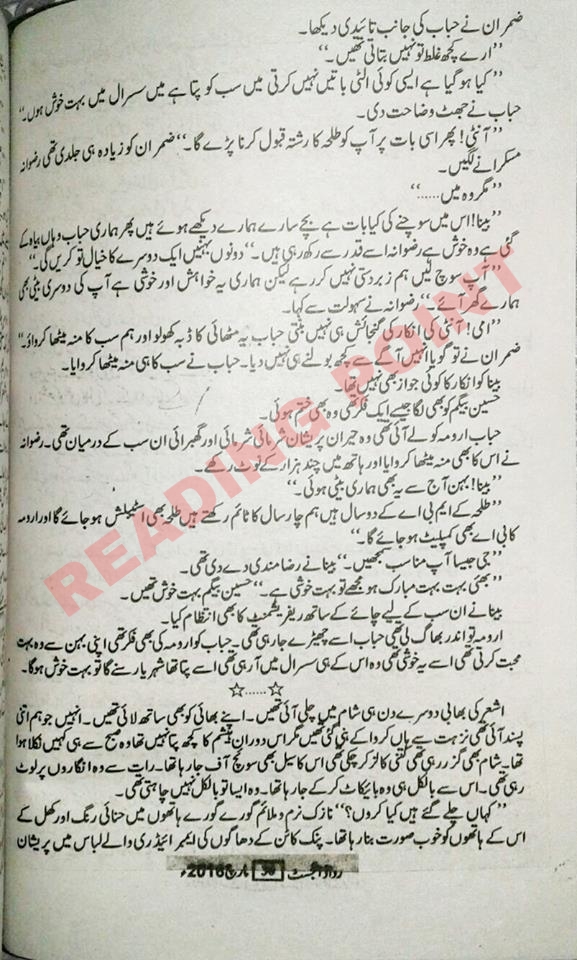 ضمران نے حباب کی جانب تائیدی دیکھا۔
”ارے کچھ غلط تو نہیں بتاتی تھیں۔“
”کیا ہو گیا ہے ایسی کوئی الٹی باتیں نہیں کرتی میں سب کو پتا ہے میں سسرال میں بہت خوش ہوں۔“
حباب نے جھٹ وضاحت دی۔
”آنٹی! پھر اسی بات پر آپ کو طلحہ کا رشتہ قبول کرنا پڑے گا۔“ ضمران کو زیادہ ہی جلدی تھی رضوانہ
مسکرانے لگیں۔
”مگر وہ میں......“
”بینا! اس میں سوچنے کی کیا بات ہے بچے سارے ہمارے دیکھے ہوئے ہیں پھر ہماری حباب وہاں بیاہ کے
گئی ہے وہ خوش ہے رضوانہ اسے قدر سے رکھ رہی ہیں۔“ دونوں بہنیں ایک دوسرے کا خیال تو کریں گی۔“
”آپ سوچ لیں ہم زبردستی نہیں کر رہے لیکن ہماری یہ خواہش اور خوشی ہے آپ کی دوسری بیٹی بھی
ہمارے گھر آئے۔“ رضوانہ نے سہولت سے کہا۔
”امی! آنٹی کی انکار کی گنجائش ہی نہیں بنتی حباب یہ مٹھائی کا ڈبہ کھولو اور ہم سب کا منہ میٹھا کرواؤ۔“
ضمران نے تو گویا انہیں آگے سے کچھ بولنے ہی نہیں دیا۔ حباب نے سب کا ہی منہ میٹھا کروایا۔
بینا کو انکار کا کوئی جواز بھی نہیں تھا۔
حسین بیگم کو بھی لگا جیسے ایک فکر تھی وہ بھی ختم ہوئی۔
حباب ارومہ کو لے آئی تھی وہ حیران پریشان شرمائی شرمائی اور گھبرائی ان سب کے درمیان تھی۔ رضوانہ
نے اس کا بھی منہ میٹھا کروایا اور ہاتھ میں چند ہزار کے نوٹ رکھے۔
”بینا! بہن آج سے یہ بھی ہماری بیٹی ہوئی۔“
”طلحہ کے ایم بی اے کے دو سال ہیں ہم چار سال کا ٹائم رکھتے ہیں طلحہ بھی اسٹیبلش ہو جائے گا اور ارومہ
کا بی اے بھی کمپلیٹ ہو جائے گا۔“
”جی جیسا آپ مناسب سمجھیں۔“ بینا نے رضامندی دے دی تھی۔
”بھئی بہت بہت مبارک ہو مجھے تو بہت خوشی ہے۔“ حسین بیگم بہت خوش تھیں۔
بینا نے ان سب کے لیے چائے کے ساتھ ریفریشمنٹ کا بھی انتظام کیا۔
ارومہ تو اندر بھاگ لی تھی حباب اسے چھیڑے جا رہی تھی۔ حباب کو ارومہ کی بھی فکر تھی اپنی بہن سے وہ بہت
محبت کرتی تھی اسے یہ خوشی تھی وہ اس کے ہی سسرال میں آ رہی تھی اسے پتا تھا شہریار سنے گا تو بہت خوش ہوگا۔
☆......☆
اشعر کی بھابی دوسرے دن ہی شام میں چلی آئی تھیں۔ اپنے بھائی کو بھی ساتھ لائی تھیں۔ انہیں جو ہم اتنی
پسند آئی تھی نزہت سے ہاں کروا کے ہی گئی تھیں مگر اس دوران میشم کا کچھ پتا نہیں تھا وہ صبح سے ہی کہیں نکلا ہوا
تھا۔ شام بھی گزر رہی تھی کتنی کالز کر چکی تھی اس کا سیل بھی سوئچ آف جا رہا تھا۔ رات سے وہ انگاروں پر لوٹ
رہی تھی۔ اس سے بالکل ہی وہ بائیکاٹ کر کے جا رہا تھا۔ وہ ایسا تو بالکل نہیں چاہتی تھی۔
”کہاں چلے گئے ہیں کیا کروں؟“ نازک نرم و ملائم گورے گورے ہاتھوں میں حنائی رنگ اور کھل کے
اس کے ہاتھوں کو خوب صورت بنا رہا تھا۔ پنک کاٹن کے دھاگوں کی ایمبرائیڈری والے لباس میں پریشان
ردا ڈائجسٹ مارچ 2016ء
READING POINT